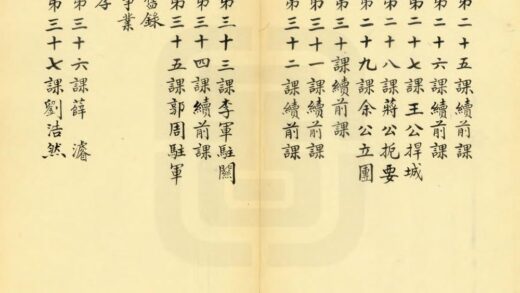 第二十五課續前課
第二十六課續前課
第二十七課王公捍城
第二十八課蔣公扼要
第二十九課余公立團
第三十課續前課
第三十一課續前課
第三十二課續前課
第三十三課李軍駐關
第三十四課續前課
第三十五課郭周駐軍
錄
事業
第三十六課薛濬
第三十七課劉浩然